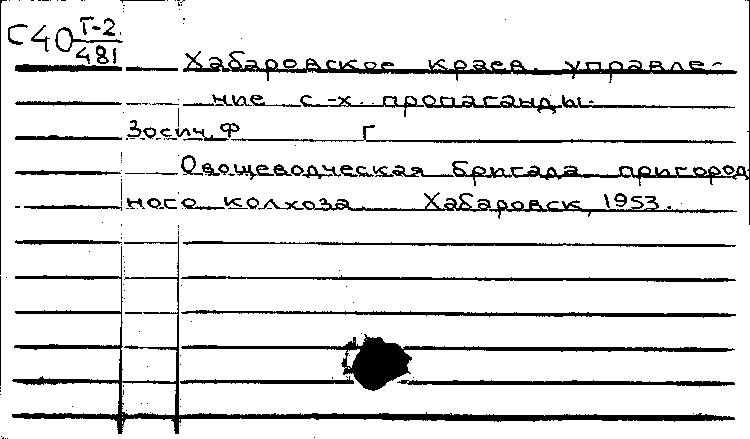 С40 Т-2
481
Хабаровское краев. управле-
ние с.-х. пропаганды.
Зосич, Ф Г
Овощеводческая бригада пригород
ного колхоза. Хабаровск, 1953.